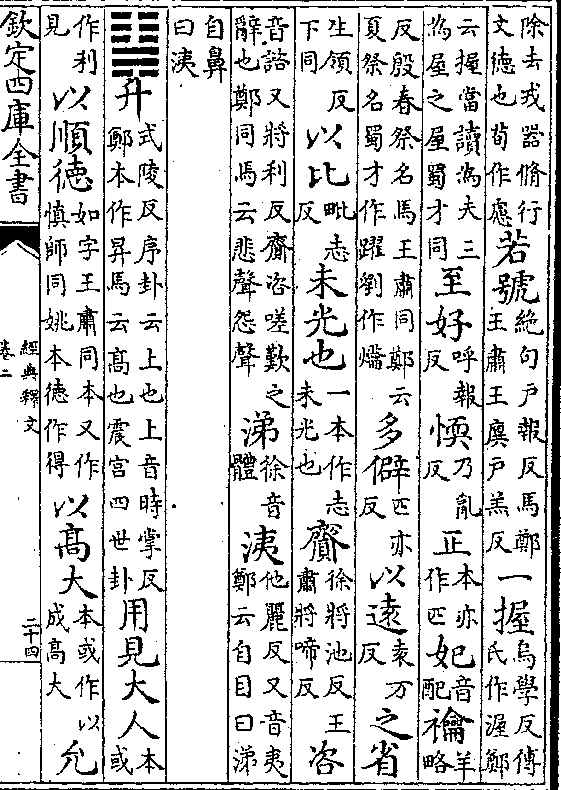 除去戎器脩行文德也荀作慮若號絶句户報反馬鄭王肅王廙户羔反一握烏學反傅氏作渥鄭
云握當讀為夫三為屋之屋蜀才同至好呼報反愞乃亂反正本亦作匹妃音配禴羊略
反殷春祭名馬王肅同鄭云夏祭名蜀才作躍劉作爚多僻匹亦反以遠袁万反之省
生領反下同以比毗志反未光也一本作志未光也齎徐將池反王肅將啼反咨
音諮又將利反齎咨嗟歎之辭也鄭同馬云悲聲怨聲涕徐音體洟他麗反又音夷鄭云自目曰涕
自鼻曰洟
䷭升式陵反序卦云上也上音時掌反鄭本作昇馬云髙也震宫四世卦用見大人本或
作利見以順徳如字王肅同本又作慎師同姚本徳作得以髙大本或作以成髙大允
欽定四庫全書
經典釋文
卷二
二十四